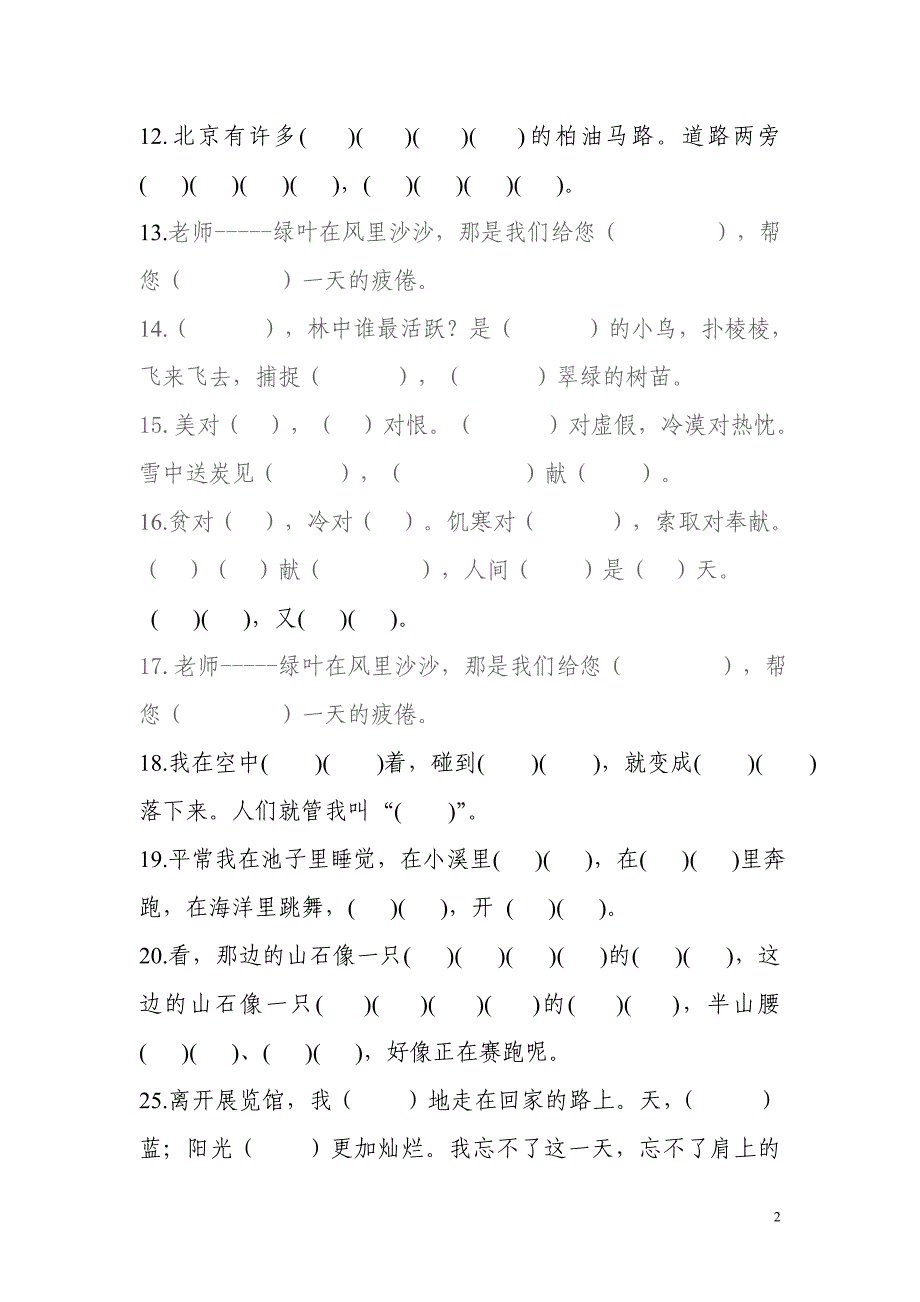 12.北京有许多(    )(    )(    )(    )的柏油马路。道路两旁
(    )(    )(    )(    )，(    )(    )(    )(    )。
13.老师-----绿叶在风里沙沙，那是我们给您（        ），帮
您（        ）一天的疲倦。
14.（      ），林中谁最活跃？是（      ）的小鸟，扑棱棱，
飞来飞去，捕捉（      ），（      ）翠绿的树苗。
15. 美对（  ），（  ）对恨。（      ）对虚假，冷漠对热忱。
雪中送炭见（    ），（        ）献（    ）。
16.贫对（  ），冷对（  ）。饥寒对（      ），索取对奉献。
（  ）（  ）献（        ），人间（    ）是（  ）天。
(    )(    )，又(    )(    )。
17. 老师-----绿叶在风里沙沙，那是我们给您（        ），帮
您（        ）一天的疲倦。
18.我在空中(    )(    )着，碰到(    )(    )，就变成(    )(    )
落下来。人们就管我叫“(    )”。
19.平常我在池子里睡觉，在小溪里(    )(    )，在(    )(    )里奔
跑，在海洋里跳舞，(    )(    )，开 (    )(    )。
20.看，那边的山石像一只(    )(    )(    )(    )的(    )(    )，这
边的山石像一只(    )(    )(    )(    )的(    )(    )，半山腰
(    )(    )、(    )(    )，好像正在赛跑呢。
25.离开展览馆，我（    ）地走在回家的路上。天，（    ）
蓝；阳光（    ）更加灿烂。我忘不了这一天，忘不了肩上的
2